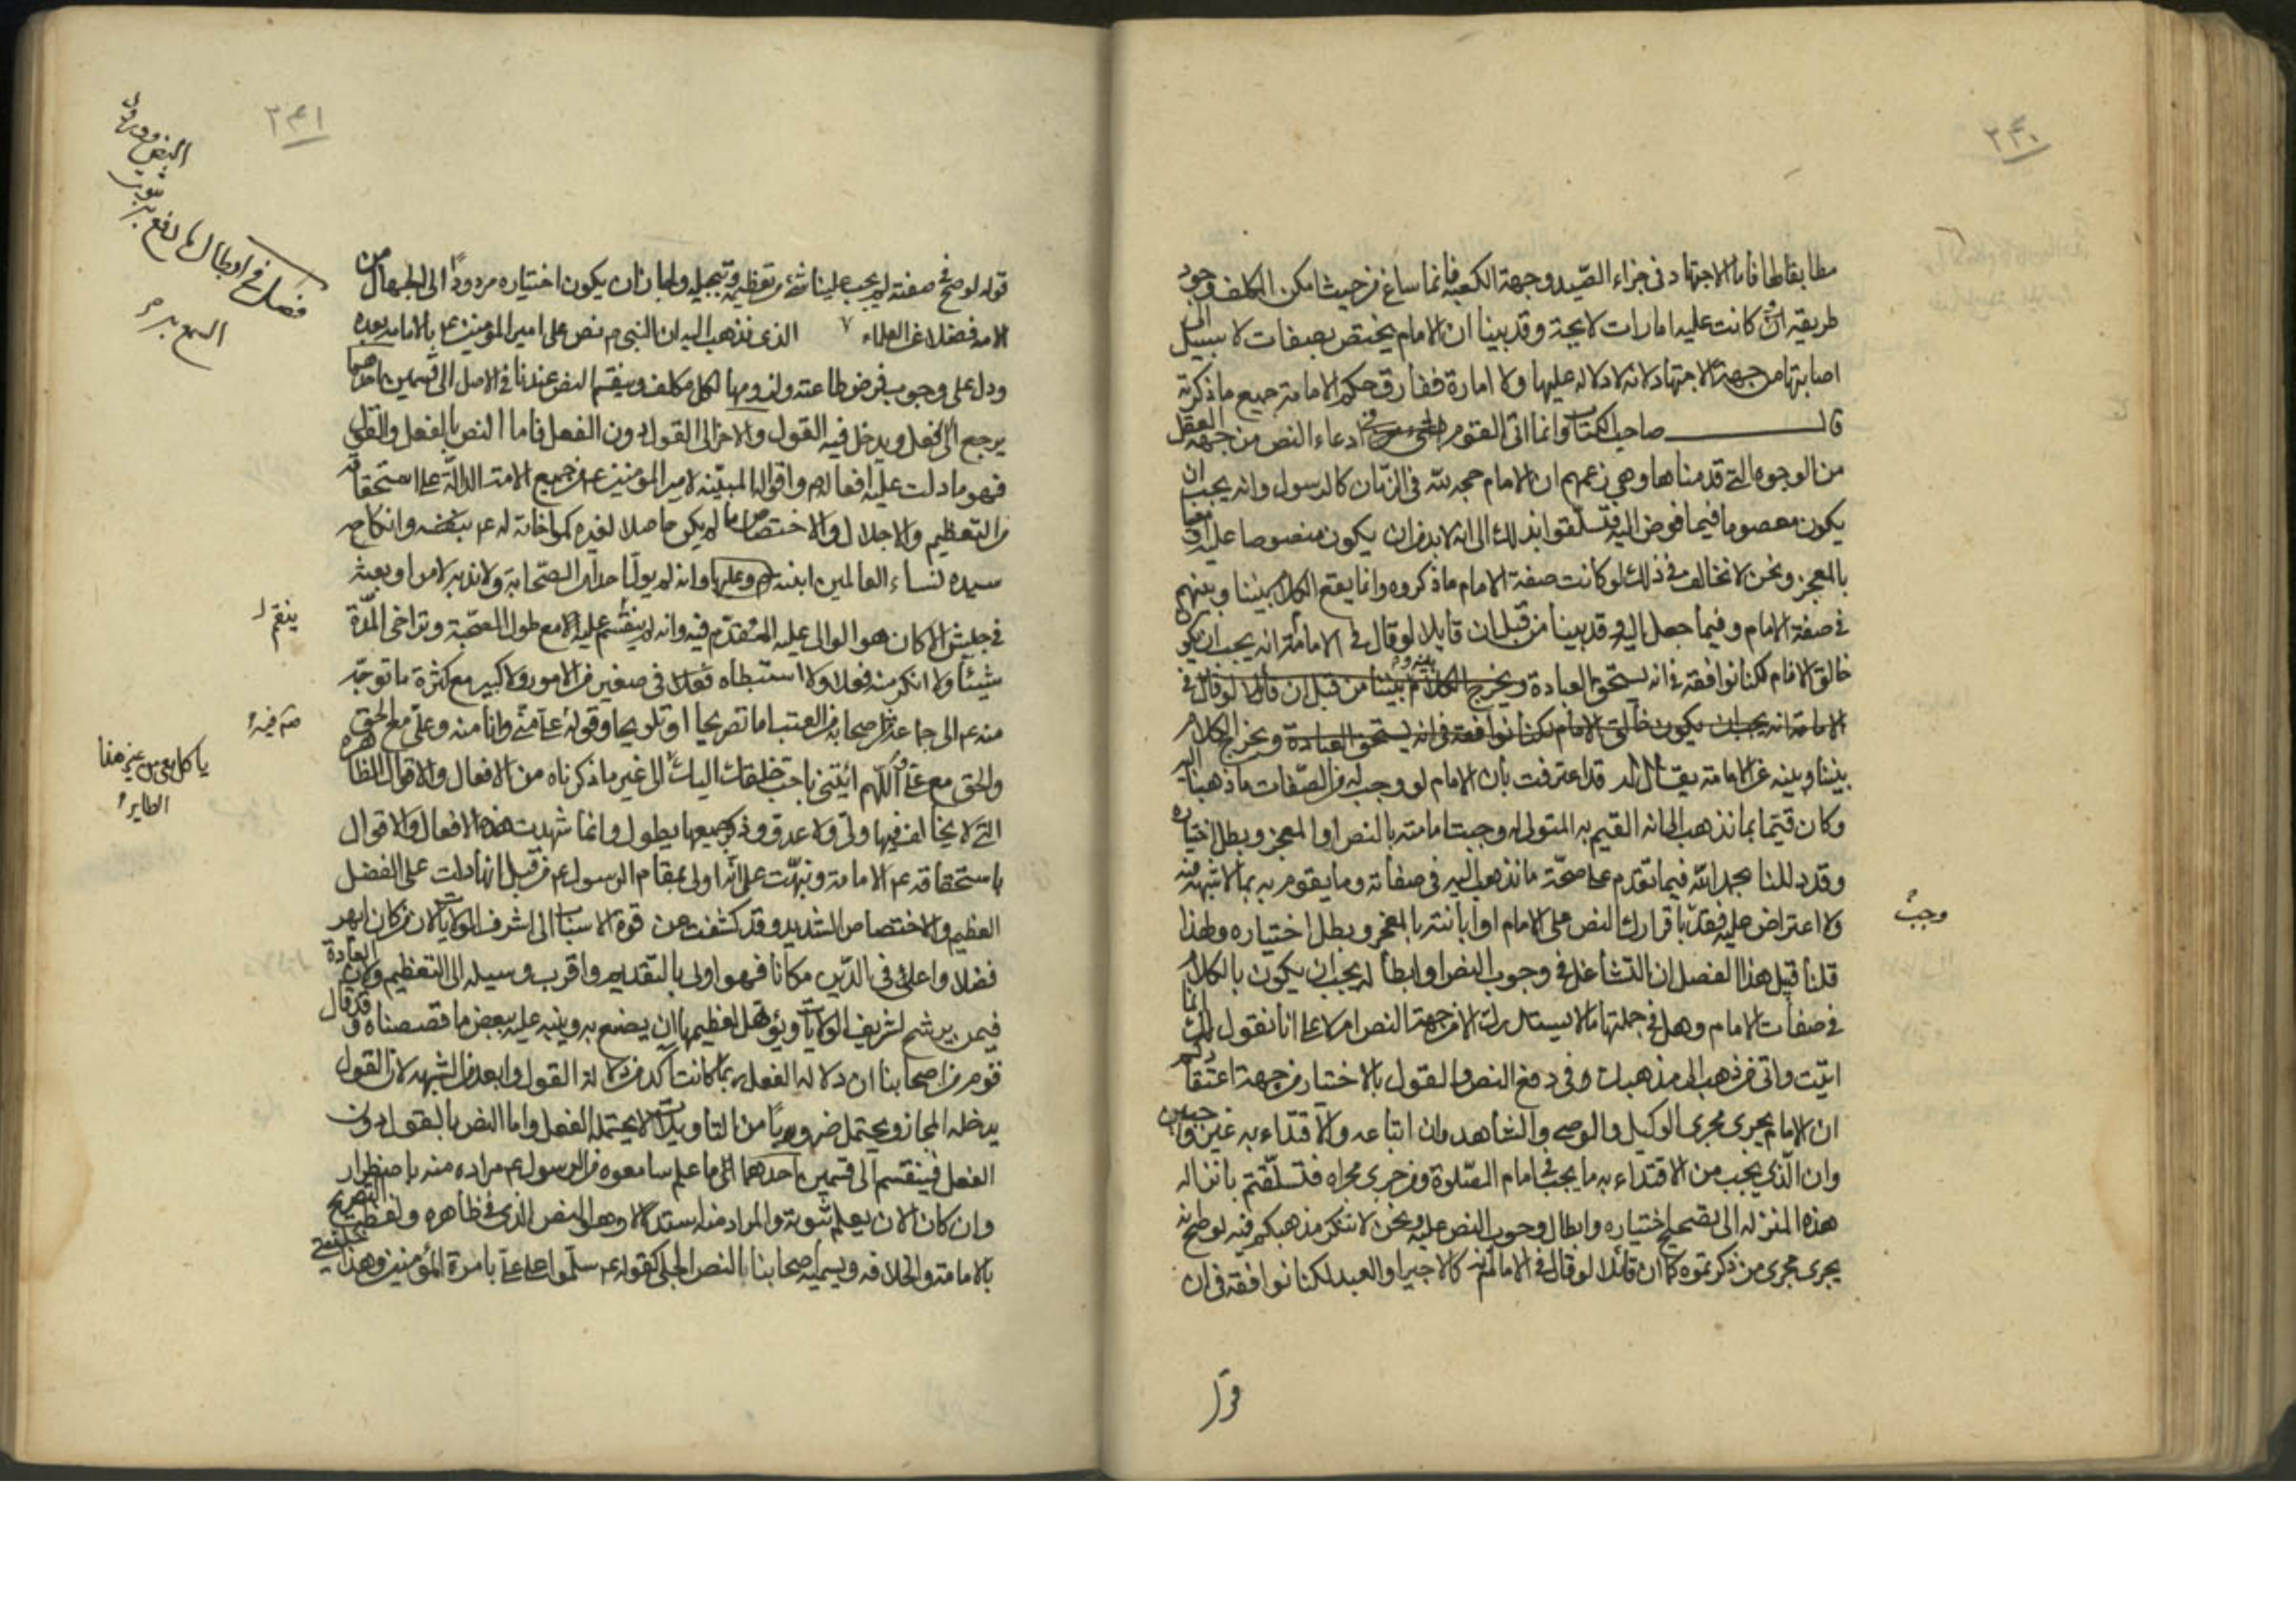 ٢٤٠
مطابقا لها فاما الاجتهاد في جزاء الصيد وجهة الكعبة فانما ساغ من حيث امكن المكلف وجود
طريقه ان كانت عليه امارات لايحة وقد بينا ان الامام يختص بصفات لا سبيل الى
اصابتها من جهة الاجتهاد لانه لا دلالة عليها ولا امارة ففارق حكم الامامة جميع ما ذكرته
قال صاحب الكتاب وانما اتى القوم في ادعاء النص من جهة العقل
من الوجوه التي قدمناها وهي زعمهم ان الامام حجه لله في الزمان كالرسول وانه يجب ان
يكون معصوما فيما فوض اليه فتسلقوا بذلك الى انه لا بد من ان يكون منصوصا عليه او معينا
بالمعجز ونحن لا نخالف في ذلك لو كانت صفة الامام ما ذكروه وانما يقع الكلام بيننا وبينهم
في صفة الامام وفيما جعل اليه وقد بينا من قبل ان قايلا لو قال في الامامة انه يجب ان يكون
خالق الانام لكنا نوافقه في انه يستحق العبادة ويخرج الكلام بيننا من قبل ان قايلا لو قال في
الامامة انه يجب ان يكون خالق الانام لكنا نوافقه في انه يستحق العبادة ويخرج الكلام
بيننا وبينه عن الامامة يقال له قد اعترفت بان الامام لو وجب له من الصفات ما ذهبنا اليه
وكان قيما بما نذهب الى انه القيم به المتولى له وجبت امامته بالنص او المعجز وبطل اختياره
وقد دللنا بحمد الله فيما تقدم على صحة ما نذهب اليه في صفاته وما يقوم به بما لا شبهة فيه
ولا اعتراض عليه فقد باقرارك النص على الامام او ابانته بالمعجز وبطل اختياره ولهذا
وجب
قلنا قبل هذا الفصل ان التشاغل في وجوب النص او ابطاله يجب ان يكون بالكلام
في صفات الامام وهل في جملتها ما لا يستدرك الا من جهة النص ام لا على انا نقول لك انما
اتيت واتى من ذهب الى مذهبك في دفع النص والقول بالاختيار من جهة اعتقادكم
ان الامام يجرى مجرى الوكيل والوصي والشاهد وان اتباعه والاقتداء به غير واجبين
وان الذي يجب من الاقتداء به ما يجب في امام الصلوة ومن جرى مجراه فتسلقتم بانزاله
هذه المنزله الى تصحيح اختياره وابطال وجوب النص عليه ونحن لا ننكر مذهبكم فيه لو صح انه
يجرى مجرى من ذكرتموه كما ان قائلا لو قال في الامام انه كالاجير او العبد لكنا نوافقه في ان
قوله
٢٤١
فصل في ابطال ما دفع به ثبوت
النص وورود
السمع به
قوله لو صح في صفته لم يجب علينا شئ من تعظيمه وتبجيله ولجاز ان يكون اختياره مردودا الى الجهال من
الامه فضلا عن العلماء ٧ الذى نذهب اليه ان النبى م نص على امير المؤمنين ع بالامامة بعده
ودل على وجوب فرض طاعته ولزومها لكل مكلف وينقسم النص عندنا في الاصل الى قسمين احدهما
يرجع الى الفعل ويدخل فيه القول والاخر الى القول دون الفعل فاما النص بالفعل والقول
فهو ما دلت عليه افعاله م واقواله المبينه لامير المؤمنين ع من جميع الامة الدالة على استحقاقه
من التعظيم والاجلال والاختصاص بما لم يكن حاصلا لغيره كمواخاته له ع بنفسه وانكاحه
سيده نساء العالمين ابنته وانه لم يول احدا من الصحابة ولا ندبه لامر او بعثه
في جيش الا كان هو الوالى عليه المقدم فيه وانه لم ينقم عليه الامع طول الصحبة وتراخى المدة
ينقم
شيئا ولا انكر منه فعلا ولا استبطاه فعلا في صغير من الامور ولا كبير مع كثرة ما توجه
منه ع الى جماعة من اصحابه من العتب اما تصريحا او تلويحا وقوله ع على منى وانا منه وعلى مع الحق
والحق مع على اللهم ائتنى باحب خلقك اليك الى غير ما ذكرناه من الافعال والاقوال الظاهره
ياكل معى من هذا
الطاير
التي لا يخالف فيها ولى ولا عدو وذكر جميعها يطول وانما شهدت هذه الافعال والاقوال
باستحقاقه ع الامامة ونبهت على انه اولى بمقام الرسول ع من قبل انها دلت على الفضل
العظيم والاختصاص الشديد وقد كشفت عن قوة الاسباب الى اشرف الولايات لان من كان ابهر
فضلا واعلى في الدين مكانا فهو اولى بالتقديم واقرب وسيله الى التعظيم ولان العادة
فيمن يرشح لشريف الولايات ويؤهل لعظيمها ان يصنع به وينبه عليه ببعض ما قصصناه وقد قال
قوم من اصحابنا ان دلالة الفعل ربما كانت آكد من دلالة القول وابعد من الشبهه لان القول
يدخله المجاز ويحتمل ضروبا من التاويلات لا يحتمله الفعل واما النص بالقول دون
الفعل فينقسم الى قسمين احدهما الى ما علم سامعوه من الرسول ع مراده منه باضطرار
وان كان الان يعلم ثبوته والمراد منه استدلالا وهو النص الذى في ظاهره ولفظه التصريح
بالامامة والخلافه ويسميه اصحابنا النص الجلي كقوله ع سلموا على على بامرة المؤمنين وهذا خليفتي